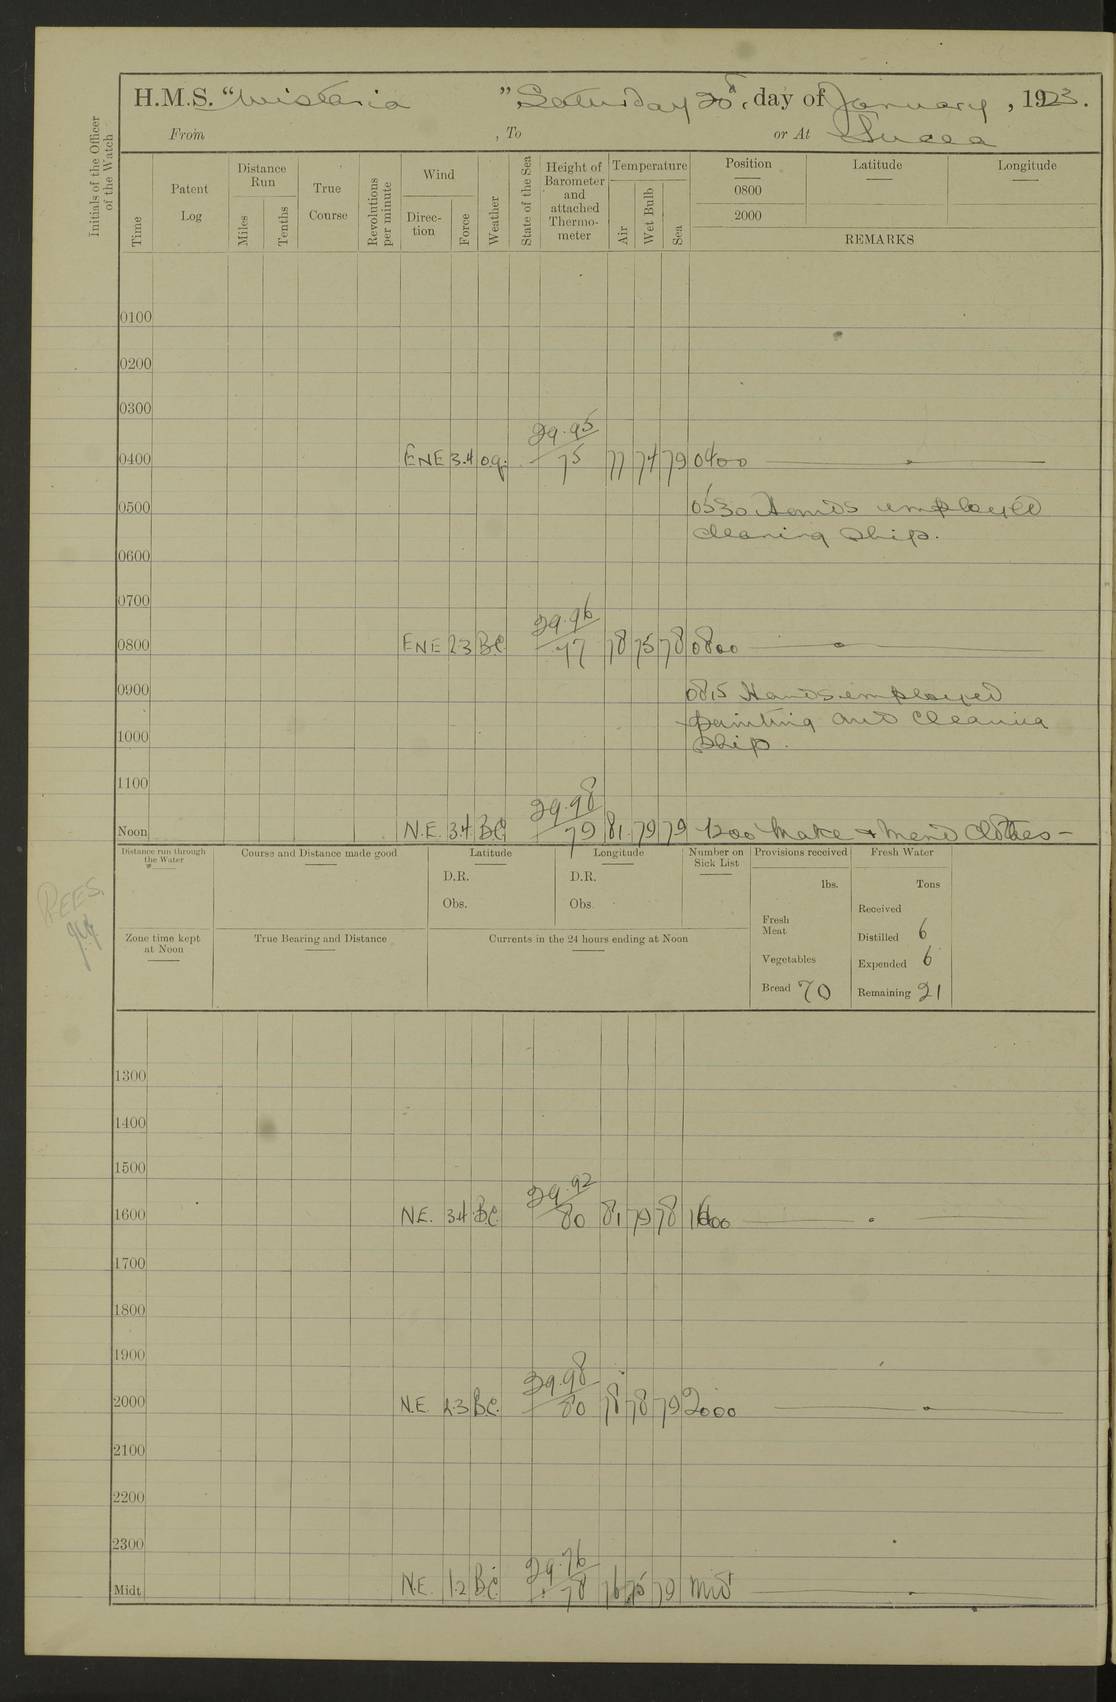 H.M.S. "Wistaria", Saturday 20th day of January, 1923.
From , To or At Lucea
Initials of the Officer of the Watch
Time
Patent Log
Distance Run
Miles
Tenths
True Course
Revolutions per minute
Wind
Direction
Force
Weather
State of the Sea
Height of Barometer and attached Thermometer
Temperature
Air
Wet Bulb
Sea
Position
0800
2000
Latitude
Longitude
REMARKS
0100
0200
0300
29.95
0400 ENE 3.4 o.q. 75 77 74 79 0400
0500 0530 Hands employed
cleaning ship.
0600
0700
29.96
0800 ENE 2.3 B.C. 77 78 75 78 0800
0900 0815 Hands employed
painting and cleaning
1000 ship.
1100
29.98
Noon N.E. 3.4 BC 79 81 79 79 1200 Make & Mend Clothes —
Distance run through the Water
Course and Distance made good
Latitude
D.R.
Obs.
Longitude
D.R.
Obs.
Number on Sick List
Provisions received
lbs.
Fresh Meat
Vegetables
Bread 70
Fresh Water
Tons
Received
Distilled 6
Expended 6
Remaining 21
REES.
Zone time kept at Noon
True Bearing and Distance
Currents in the 24 hours ending at Noon
1300
1400
1500
29.92
1600 N.E. 3.4 B.C. 80 81 79 78 1600
1700
1800
1900
29.98
2000 N.E. 2.3 B.C. 80 78 78 79 2000
2100
2200
2300
29.96
Midt N.E. 1.2 B.C. 78 76 75 79 Mid